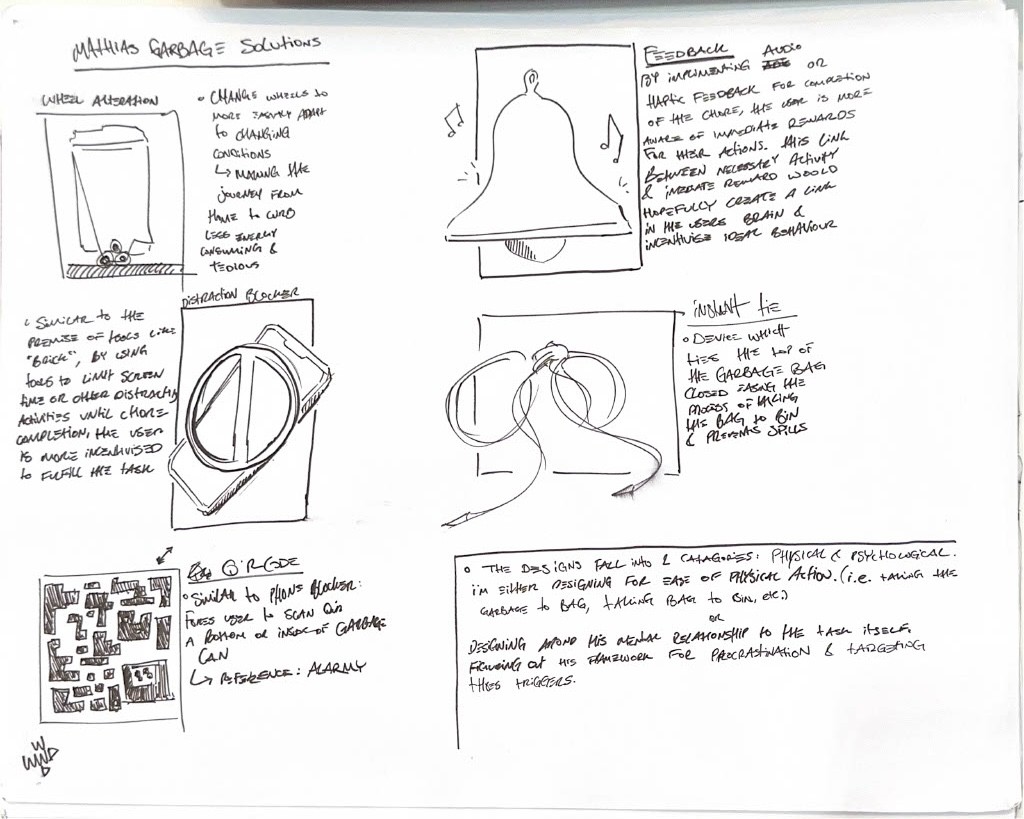 MATHIAS GARBAGE SOLUTIONS
WHEEL ALTERATION
• CHANGE WHEELS TO
MORE EASILY ADAPT
TO CHANGING
CONDITIONS
↳ MAKING THE
JOURNEY FROM
HOME TO CURB
LESS ENERGY
CONSUMING &
TEDIOUS
FEEDBACK
BY IMPLIMENTING AUDIO OR
HAPTIC FEEDBACK FOR COMPLETION
OF THE CHORE, THE USER IS MORE
AWARE OF IMMEDIATE REWARDS
FOR THEIR ACTIONS. THIS LINK
BETWEEN NECESSARY ACTIVITY
& IMEDIATE REWARD WOULD
HOPEFULLY CREATE A LINK
IN THE USERS BRAIN &
INCENTIVISE IDEAL BEHAVIOUR
DISTRACTION BLOCKER
• SIMILAR TO THE
PREMISE OF TOOLS LIKE
"BRICK", BY USING
TOOLS TO LIMIT SCREEN
TIME OR OTHER DISTRACTING
ACTIVITIES UNTIL CHORE
COMPLETION, THE USER
IS MORE INCENTIVISED
TO FULFILL THE TASK
INSTANT TIE
• DEVICE WHICH
TIES THE TOP OF
THE GARBAGE BAG
CLOSED EASING THE
PROCESS OF TAKING
THIS BAG TO BIN
& PREVENTS SPILLS
QR CODE
• SIMILAR TO PHONE BLOCKER:
FORCES USER TO SCAN ON
A BOTTOM OR INSIDE OF GARBAGE
CAN
↳ REFERENCE: ALARMY
• THE DESIGNS FALL INTO 2 CATAGORIES: PHYSICAL & PSYCHOLOGICAL.
I'M EITHER DESIGNING FOR EASE OF PHYSICAL ACTION. (i.e. TAKING THE
GARBAGE TO BAG, TAKING BAG TO BIN, ETC)
OR
DESIGNING AROUND HIS MENTAL RELATIONSHIP TO THE TASK ITSELF.
FIGURING OUT HIS FRAMEWORK FOR PROCRASTINATION & TARGETING
THIES TRIGGERS.